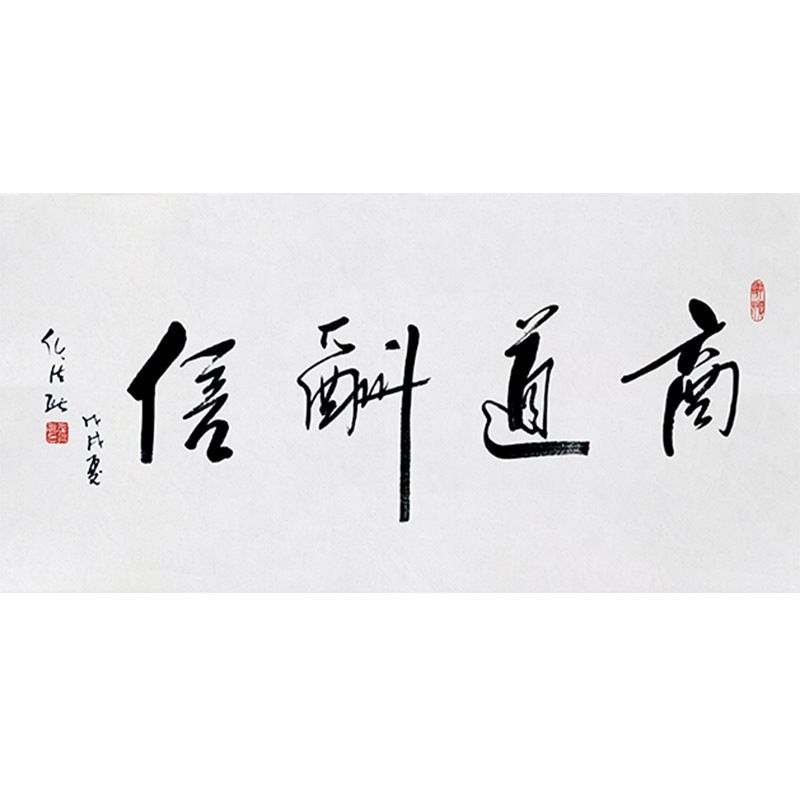 商道酬信
戊戌夏